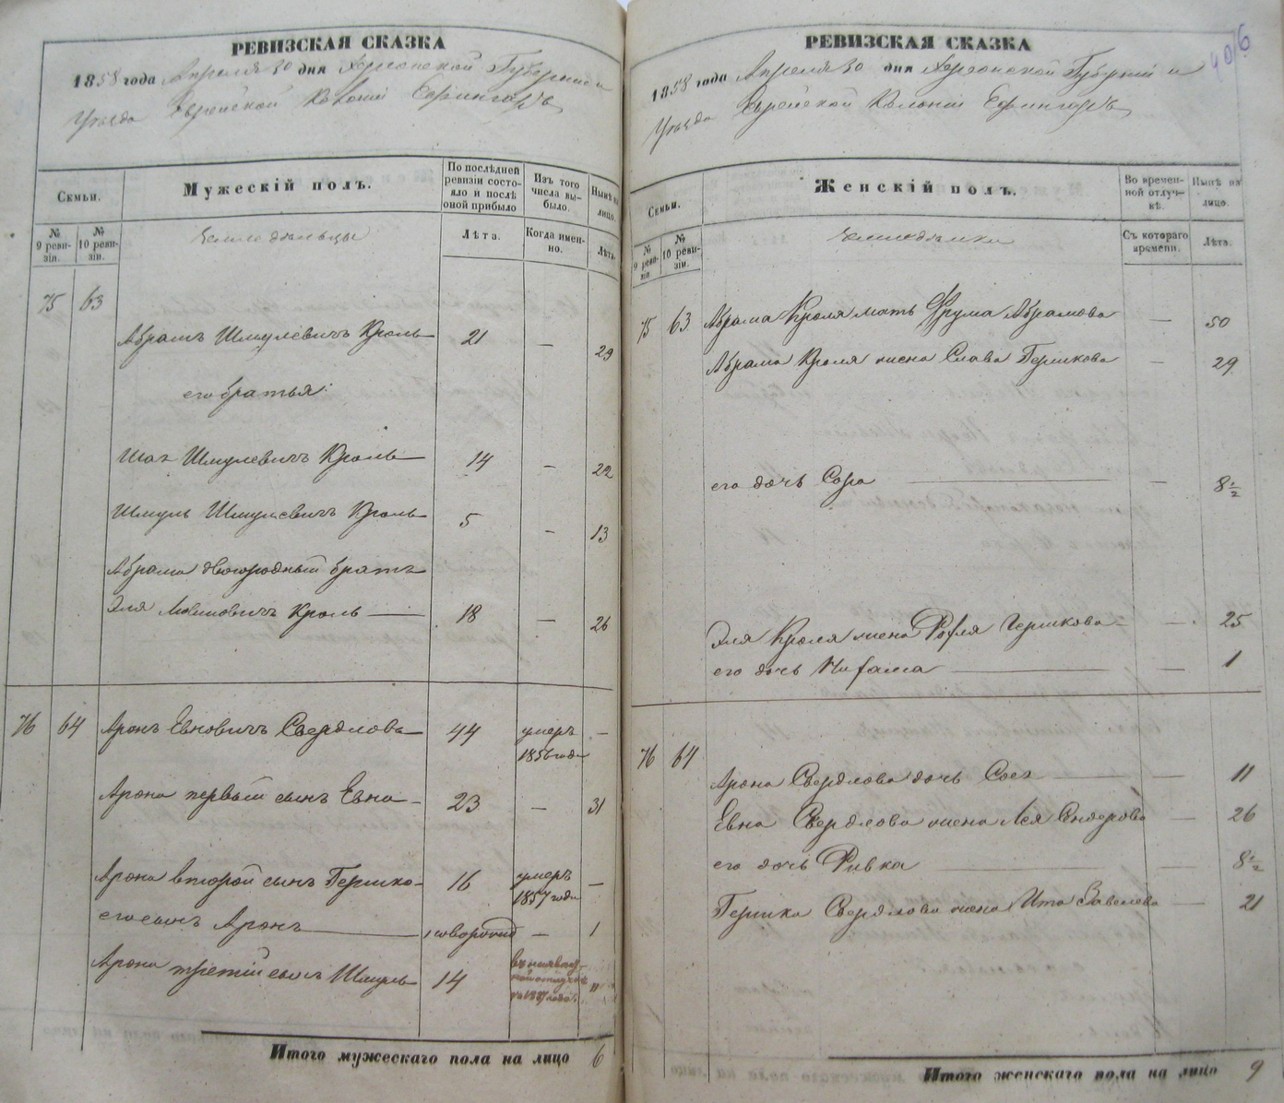 РЕВИЗСКАЯ СКАЗКА
1858 года Апреля 30 дня Херсонской Губернии и
Уезда Еврейской Колонии Ефингаръ
Семьи.
Мужескій полъ.
По послѣдней ревизіи состояло и послѣ оной прибыло
Изъ того числа выбыло.
Нынѣ на лицо.
№ 9 ревизіи.
№ 10 ревизіи.
Земледельцы
Лѣта.
Когда именно.
Лѣта.
75 63
Абрамъ Шмулевичъ Кроль 21 — 29
его братья:
Шмулевичъ Кроль 14 — 22
Шмуль Шмулевичъ Кроль 5 — 13
Абрама двоюродный братъ
Эля Мовшовичъ Кроль — 18 — 26
76 64 Аронъ Евновичъ Свердловъ 44 умеръ 1856 года —
Арона первый сынъ Евна 23 — 31
Арона второй сынъ Гершко 16 умеръ 1857 года —
его сынъ Аронъ — новорожд — 1
Арона третій сынъ Шмуль 14
Итого мужескаго пола на лицо 6
РЕВИЗСКАЯ СКАЗКА
406
1858 года Апреля 30 дня Херсонской Губерніи и
Уезда Еврейской Колоніи Ефингаръ
Семьи.
Женскій полъ.
Во временной отлучкѣ.
Нынѣ на лицо.
№ 9 ревизіи
№ 10 ревизіи.
Земледелки
Съ котораго времени.
Лѣта.
75 63 Абрама Кроля мать Фрума Абрамова — 50
Абрама Кроля жена Слава Гершкова — 29
его дочь Сора — 8½
Эля Кроля жена Рохля Гершкова — 25
его дочь — 1
76 64
Арона Свердлова дочь Сося — 11
Евна Свердлова жена Лея — 26
его дочь Ривка — 8½
Гершка Свердлова жена Ита — 21
Итого женскаго пола на лицо 9